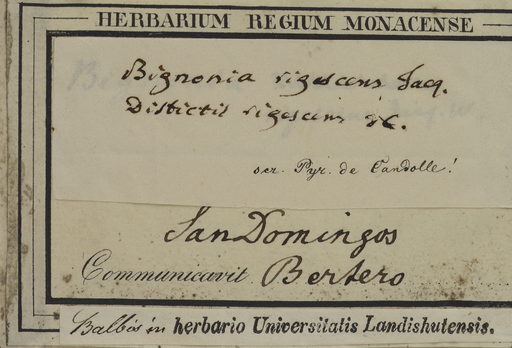 HERBARIUM REGIUM MONACENSE
Bignonia rigescens Jacq.
Distictis rigescens DC.
scr. Pyr. de Candolle!
San Domingos
Communicavit Bertero
Balbis in herbario Universitatis Landishutensis.